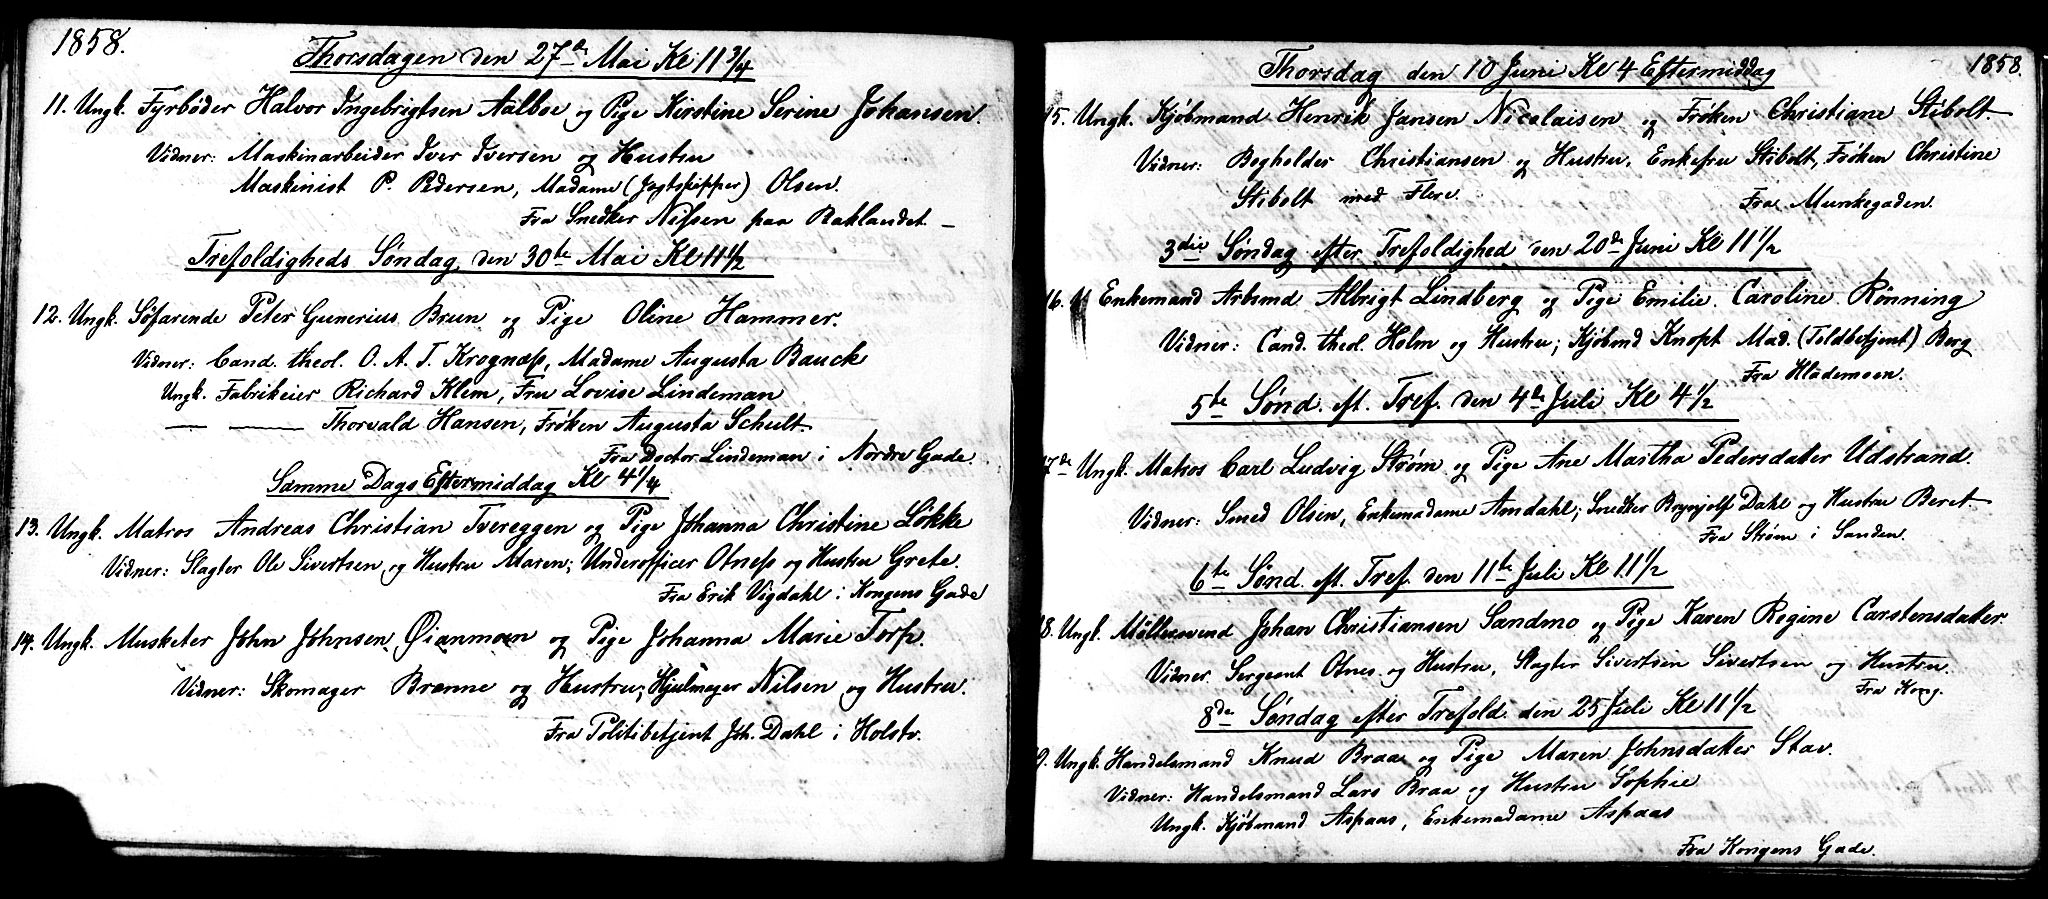 1858.
Thorsdagen den 27de Mai Kl 11 3/4
11. Ungk. Fyrbøder Halvor Ingebrigtsen Aalboe og Pige Kirstine Serine Johansen.
Vidner: Maskinarbeider Iver Iversen og Hustru
Maskinist P. Pedersen, Madame (Jagtskipper) Olsen.
Fra Snedker Nilssen paa Baklandet. —
Trefoldigheds Søndag, den 30te Mai Kl 11 1/2
12. Ungk. Søfarende Peter Gunerius Brun og Pige Oline Hammer.
Vidner: Cand. theol. O. A. T. Krognæss, Madame Augusta Bauck
Ungk. Fabrikeier Richard Klem, Fru Lovise Lindeman
— — Thorvald Hansen, Frøken Augusta Schult.
Fra Doctor Lindeman i Nordre Gade.
Samme Dags Eftermiddag Kl 4 1/4
13. Ungk. Matros Andreas Christian Tvereggen og Pige Johanna Christine Løkke
Vidner: Slagter Ole Sivertsen og Hustru Maren; Underofficer Otness og Hustru Grete.
Fra Erik Vigdahl i Kongens Gade
14. Ungk. Musketer John Johnsen Øianmoen og Pige Johanna Marie Torp.
Vidner: Skomager Brenne og Hustru; Hjulmager Nilsen og Hustru.
Fra Politibetjent Joh. Dahl i Holstv.
1858.
Thorsdag den 10 Juni Kl 4 Eftermiddag
15. Ungk. Kjøbmand Henrik Jansen Nicolaisen og Frøken Christiane Stibolt.
Vidner: Bogholder Christiansen og Hustru, Enkefru Stibolt, Frøken Christine
Stibolt med Flere.
Fra Munkegaden.
3die Søndag efter Trefoldighed den 20de Juni Kl 11 1/2
16. Enkemand Arbmd Albrigt Lindberg og Pige Emilie Caroline Rønning
Vidner: Cand. theol. Holm og Hustru; Kjøbmd Knopt Mad. (Toldbetjent) Berg
Fra Hlademoen.
5te Sønd. eft. Tref. den 4de Juli Kl 4 1/2
17de Ungk. Matros Carl Ludvig Strøm og Pige Ane Martha Pedersdatter Udstrand.
Vidner: Smed Olsen, Enkemadame Amdahl; Snedker Brynjolf Dahl og Hustru Beret.
Fra Strøm i Sanden.
6te Sønd. eft. Tref. den 11te Juli Kl 11 1/2
18. Ungk. Møllersvend Johan Christiansen Sandmo og Pige Karen Regine Carstensdatter
Vidner. Sergeant Otnes og Hustru, Slagter Sivertsen Sivertsen og Hustru.
Fra Kong.
8de Søndag efter Trefold. den 25 Juli Kl 11 1/2
9. Ungk. Handelsmand Knud Braa og Pige Maren Johnsdatter Stav.
Vidner: Handelsmand Lars Braa og Hustru Sophie
Ungk. Kjøbmand Aspaas, Enkemadame Aspaas
Fra Kongens Gade.